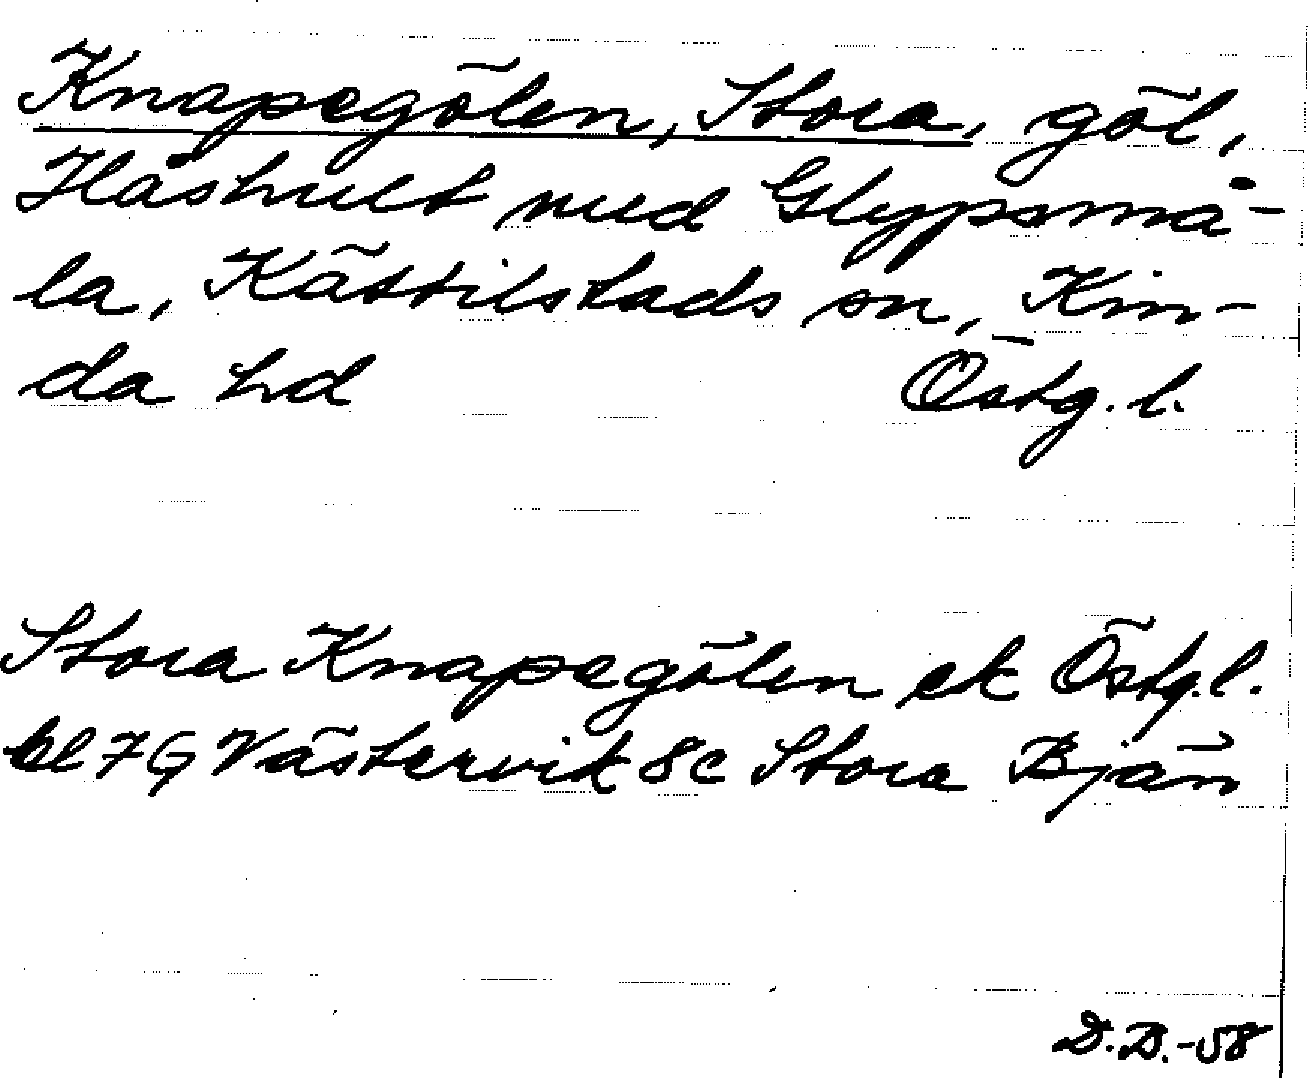 Knapegölen, Stora, göl,
Håshult med Glypsmå-
la, Kättilstads sn, Kin-
da hd Östg. l.
Stora Knapegölen ek Östg. l.
bl 7G Västervik 8c Stora Bjän
D.D.-58